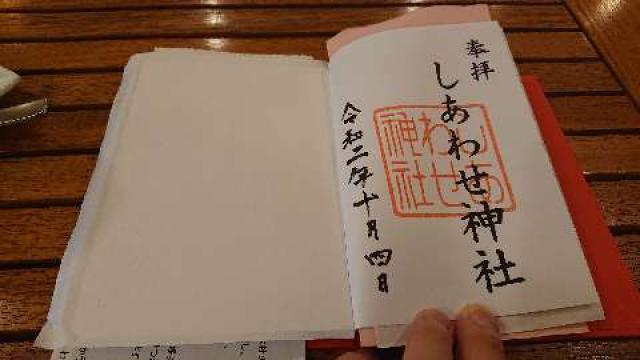 奉拝
しあわせ神社
しあ
わせ
神社
令和二年十月四日